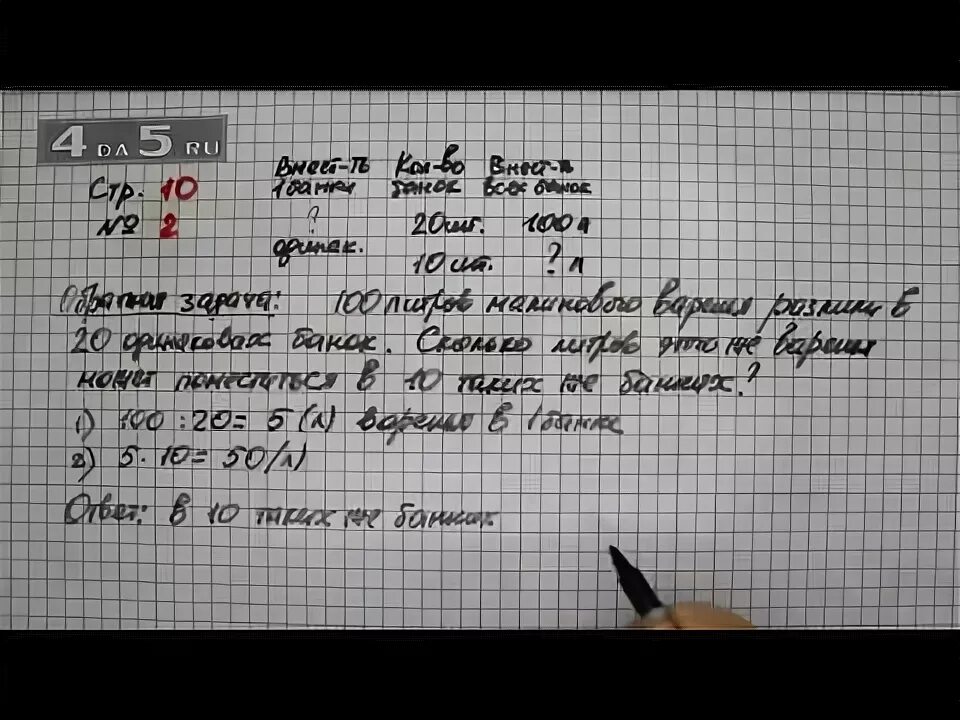 4 DA 5 RU
Вмест-ть Кол-во Вмест-ть
Стр. 10 1 банки банок всех банок
№ 2 ? 20 шт. 100 л
одинак. 10 шт. ? л
Обратная задача: 100 литров малинового варенья разлили в
20 одинаковых банок. Сколько литров этого же варенья
может поместиться в 10 таких же банках?
1) 100 : 20 = 5 (л) варенья в 1 банке
2) 5 · 10 = 50 (л)
Ответ: в 10 таких же банках